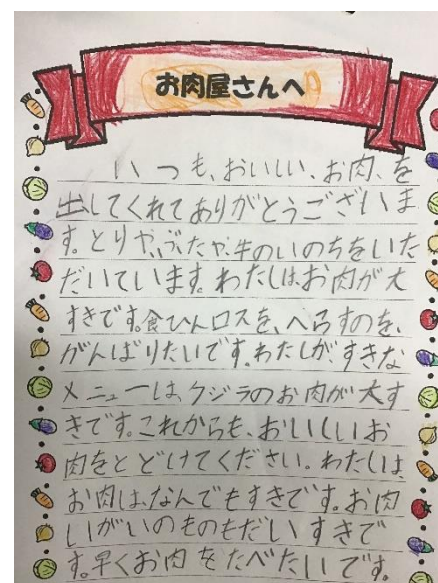 お肉屋さんへ
いつも、おいしい、お肉、を
出してくれてありがとうございま
す。とりや、ぶたや、牛のいのちをいた
だいています。わたしは、お肉が大
すきです。食ひんロスを、へらすのを、
がんばりたいです。わたしが、すきな
メニューは、クジラのお肉が大す
きです。これからも、おいしいお
肉をとどけてください。わたしは、
お肉は、なんでもすきです。お肉
いがいのものもだいすきで
す。早くお肉をたべたいです。